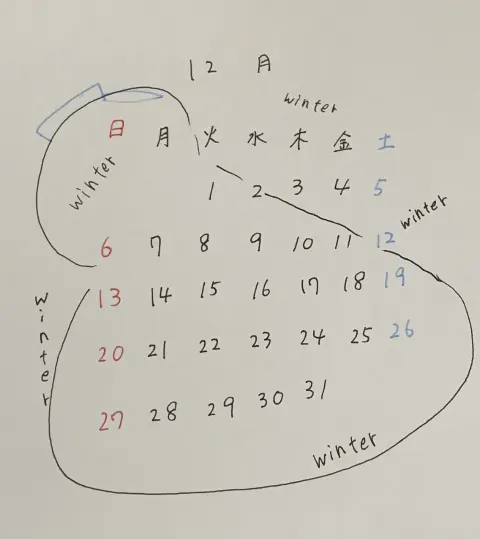 12 月
winter
日 月 火 水 木 金 土
winter
1 2 3 4 5
winter
6 7 8 9 10 11 12
13 14 15 16 17 18 19
winter
20 21 22 23 24 25 26
27 28 29 30 31
winter